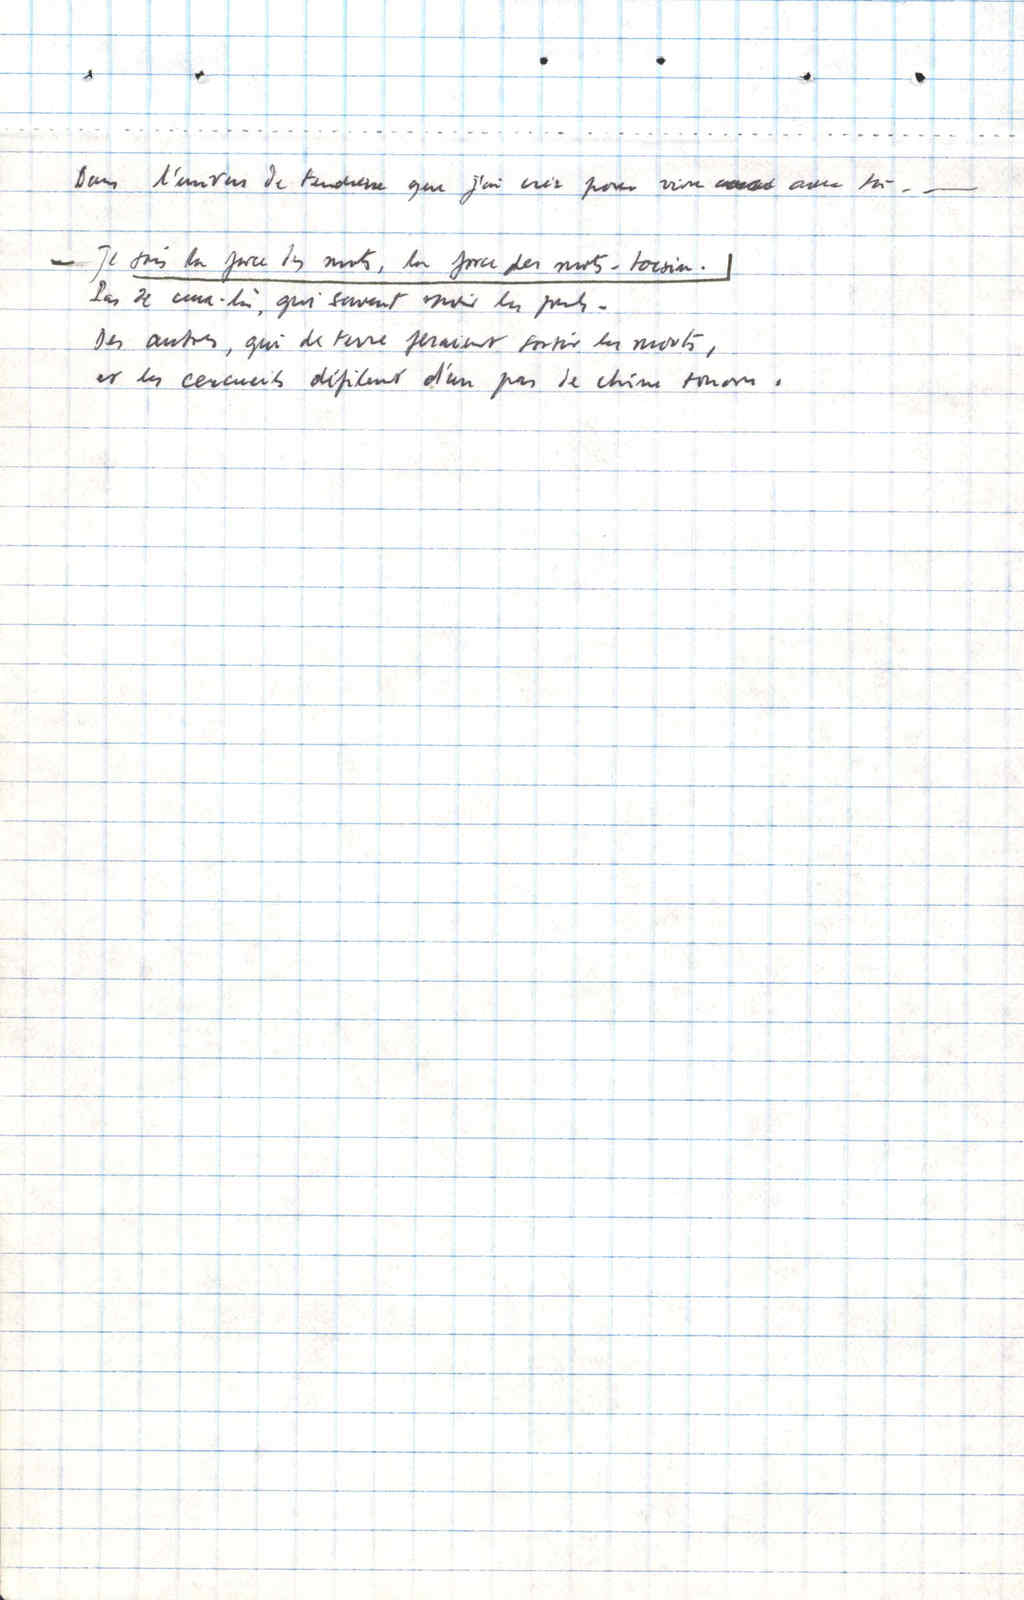 Dans l'univers de tendresse que j'ai créé pour vivre avec toi. —
— Je sais la force des mots, la force des mots-tocsin.
Pas de ceux-là, qui savent les
Des autres, qui de terre feraient sortir les morts,
et les cercueils défilent d'un pas de chêne sonore.